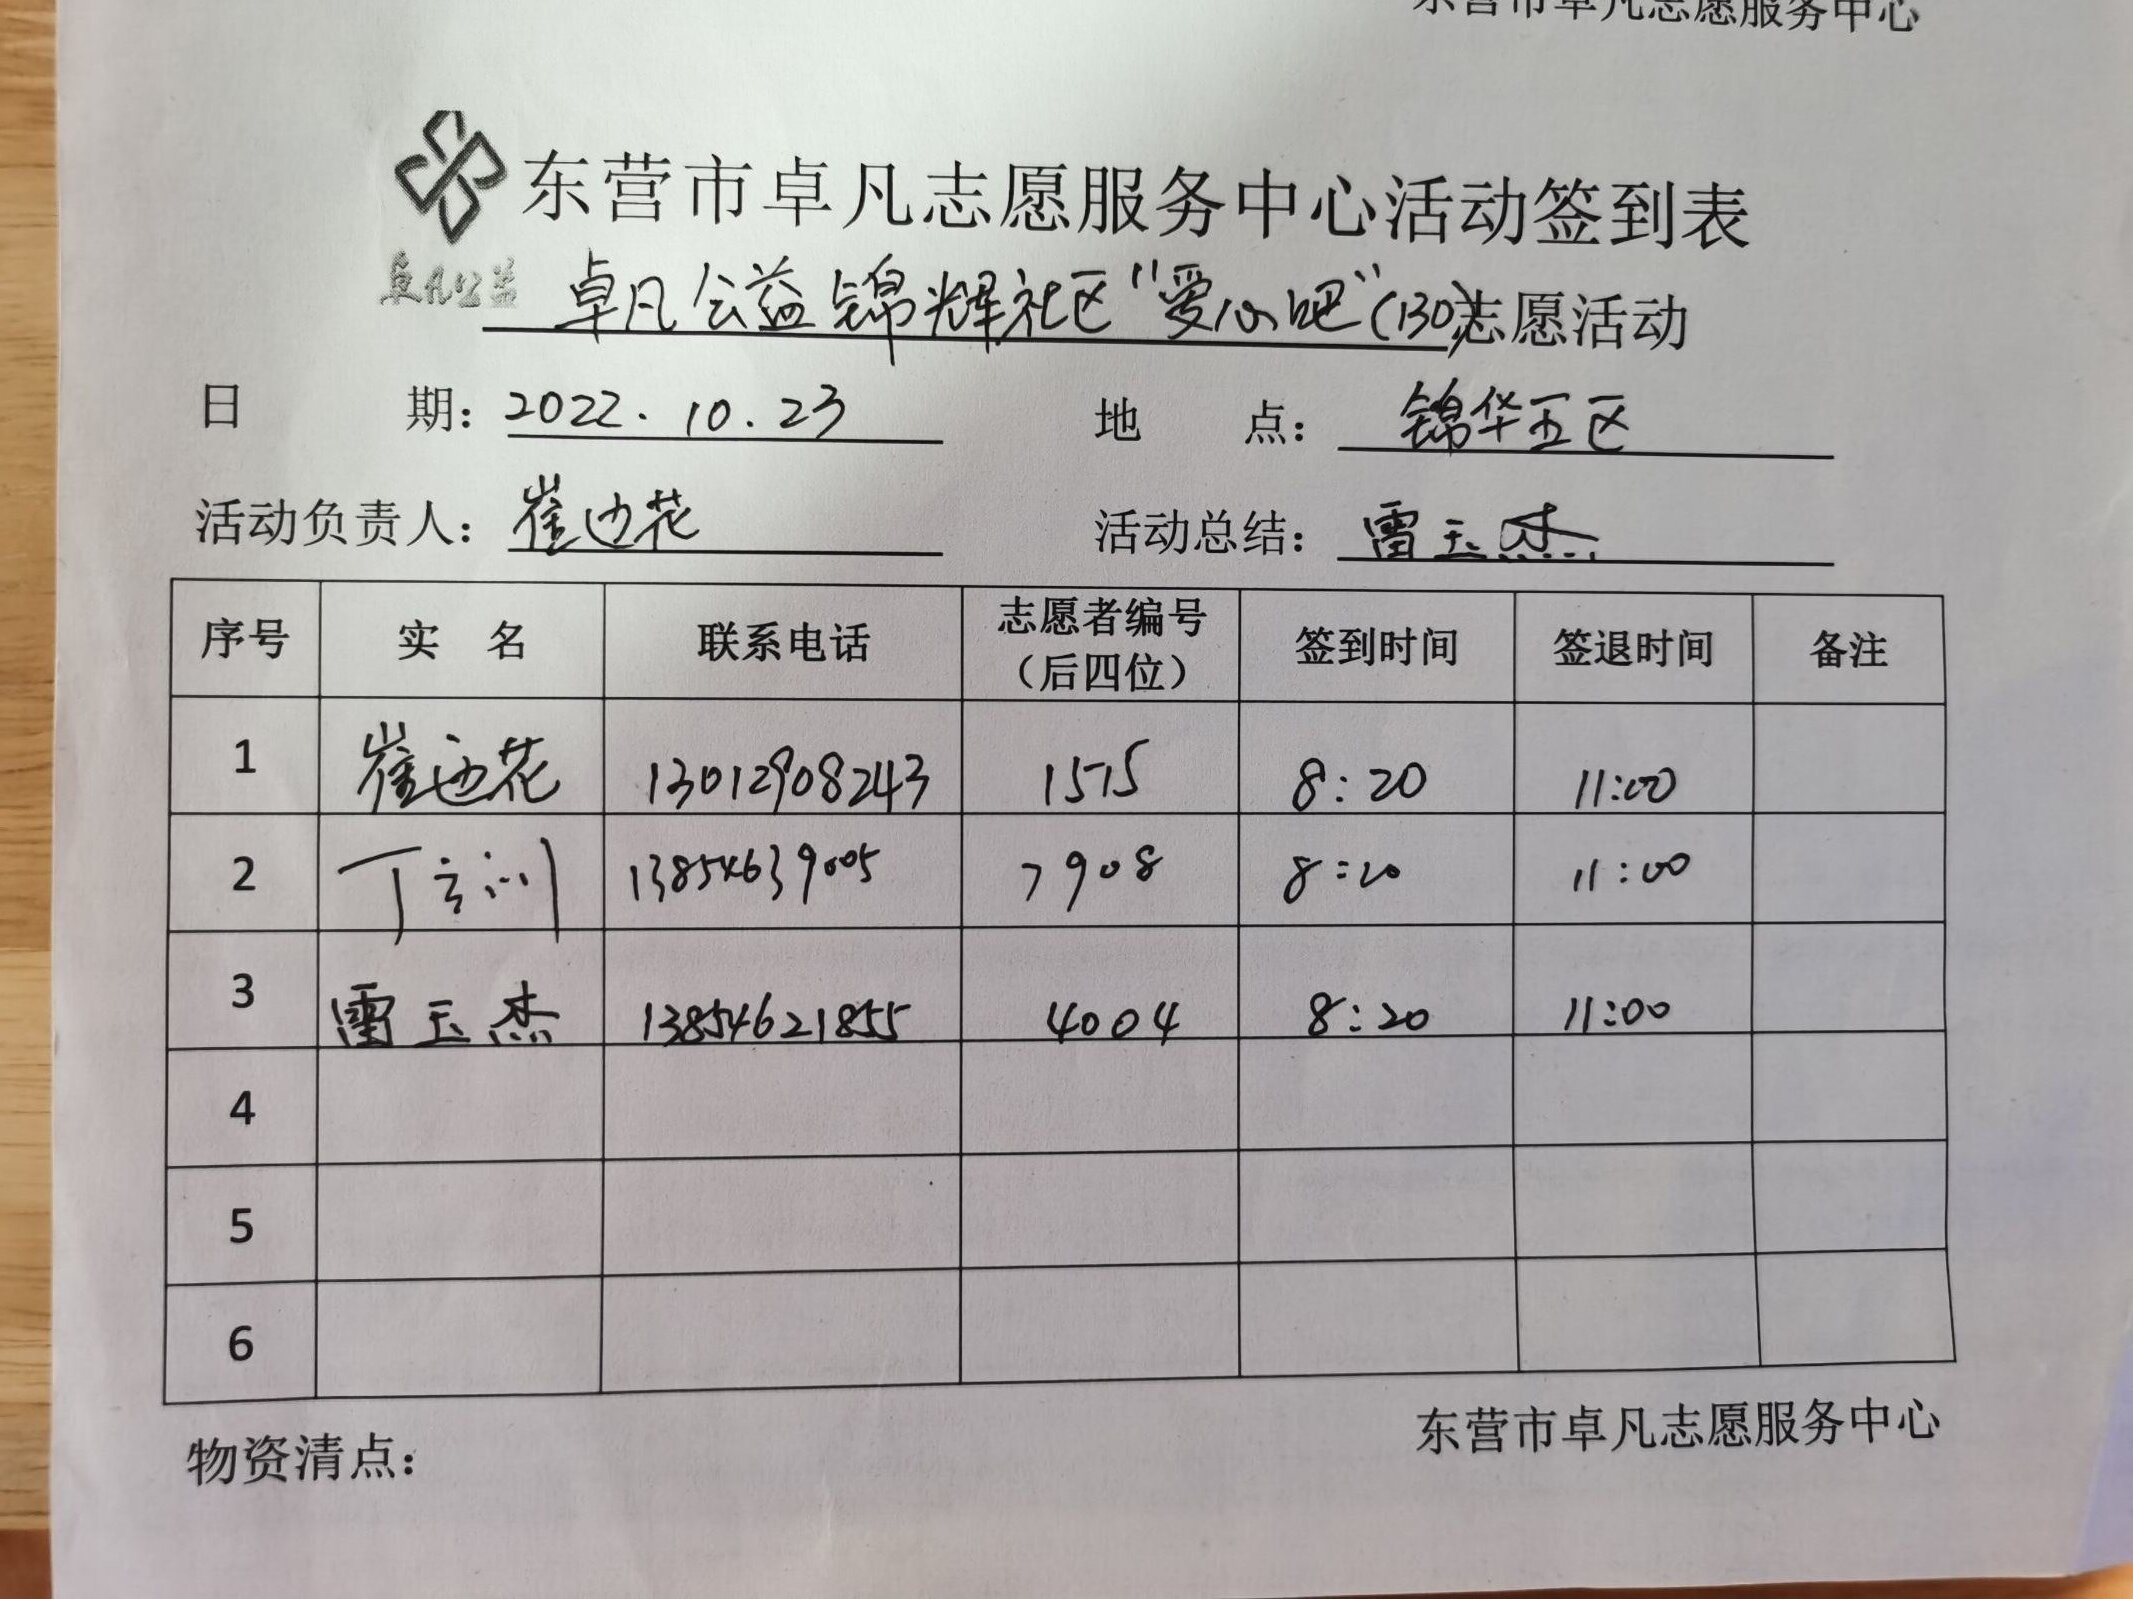 东营市卓凡志愿服务中心
东营市卓凡志愿服务中心活动签到表
卓凡公益
卓凡公益锦辉社区“爱心吧”(130)志愿活动
日期：2022.10.23 地点：锦华五区
活动负责人：崔边花 活动总结：雷玉杰
序号 实名 联系电话 志愿者编号（后四位） 签到时间 签退时间 备注
1 崔边花 13012908243 1515 8:20 11:00
2 丁 13854639005 7908 8:20 11:00
3 雷玉杰 13854621855 4004 8:20 11:00
4
5
6
东营市卓凡志愿服务中心
物资清点：